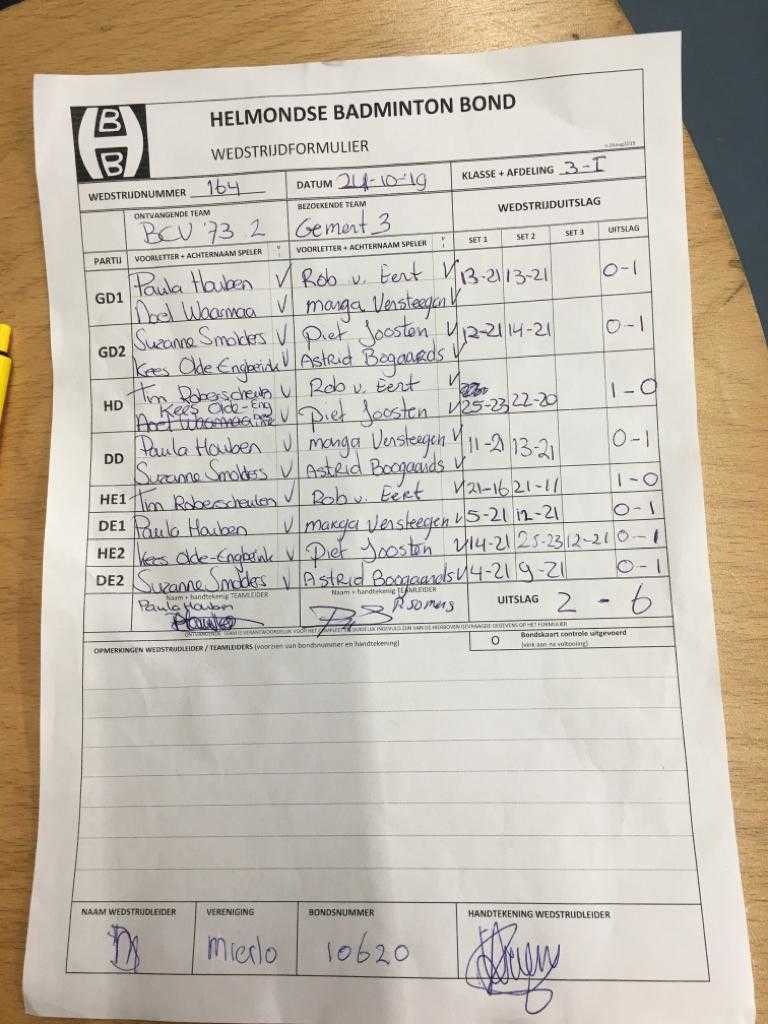 B
H
B
HELMONDSE BADMINTON BOND
WEDSTRIJDFORMULIER
WEDSTRIJDNUMMER 164 DATUM 24-10-'19 KLASSE + AFDELING 3-I
ONTVANGENDE TEAM BEZOEKENDE TEAM WEDSTRIJDUITSLAG
BCV '73 2 Gemert 3
PARTIJ VOORLETTER + ACHTERNAAM SPELER V VOORLETTER + ACHTERNAAM SPELER V SET 1 SET 2 SET 3 UITSLAG
GD1 Paula Houben V Rob v. Eert V 13-21 13-21 0-1
Noel Waarmaa V Marga Versteegen V
GD2 Suzanne Smolders V Piet Joosten V 12-21 14-21 0-1
Kees Olde Engberink V Astrid Bogaards V
HD Tim Roberscheuten V Rob v. Eert V 25-23 22-20 1-0
Kees Olde-Eng V Piet Joosten V
DD Paula Houben V Marga Versteegen V 11-21 13-21 0-1
Suzanne Smolders V Astrid Boogaards V
HE1 Tim Roberscheuten V Rob v. Eert V 21-16 21-11 1-0
DE1 Paula Houben V Marga Versteegen V 5-21 12-21 0-1
HE2 Kees Olde-Engberink V Piet Joosten V 14-21 25-23 12-21 0-1
DE2 Suzanne Smolders V Astrid Boogaards V 4-21 9-21 0-1
Naam + handtekening TEAMLEIDER Naam + handtekening TEAMLEIDER UITSLAG 2 - 6
Paula Houben R Somers
OPMERKINGEN WEDSTRIJDLEIDER / TEAMLEIDERS (voorzien van bondsnummer en handtekening) O Bondskaart controle uitgevoerd
(vink aan na voltooiing)
NAAM WEDSTRIJDLEIDER VERENIGING BONDSNUMMER HANDTEKENING WEDSTRIJDLEIDER
Mierlo 10620